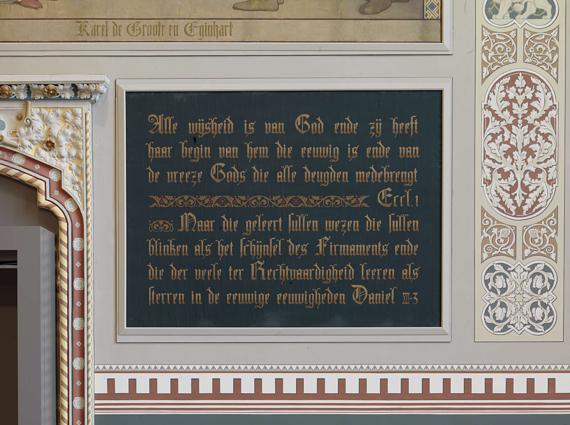 Karel de Groote en Eginhart
Alle wijsheid is van God ende zij heeft
haar begin van hem die eeuwig is ende van
de vreeze Gods die alle deugden medebrengt
Eccl. 1
Maar die geleert sullen wezen die sullen
blinken als het schijnsel des Firmaments ende
die der veele ter Rechtvaardigheid leeren als
sterren in de eeuwige eeuwigheden Daniel III-3